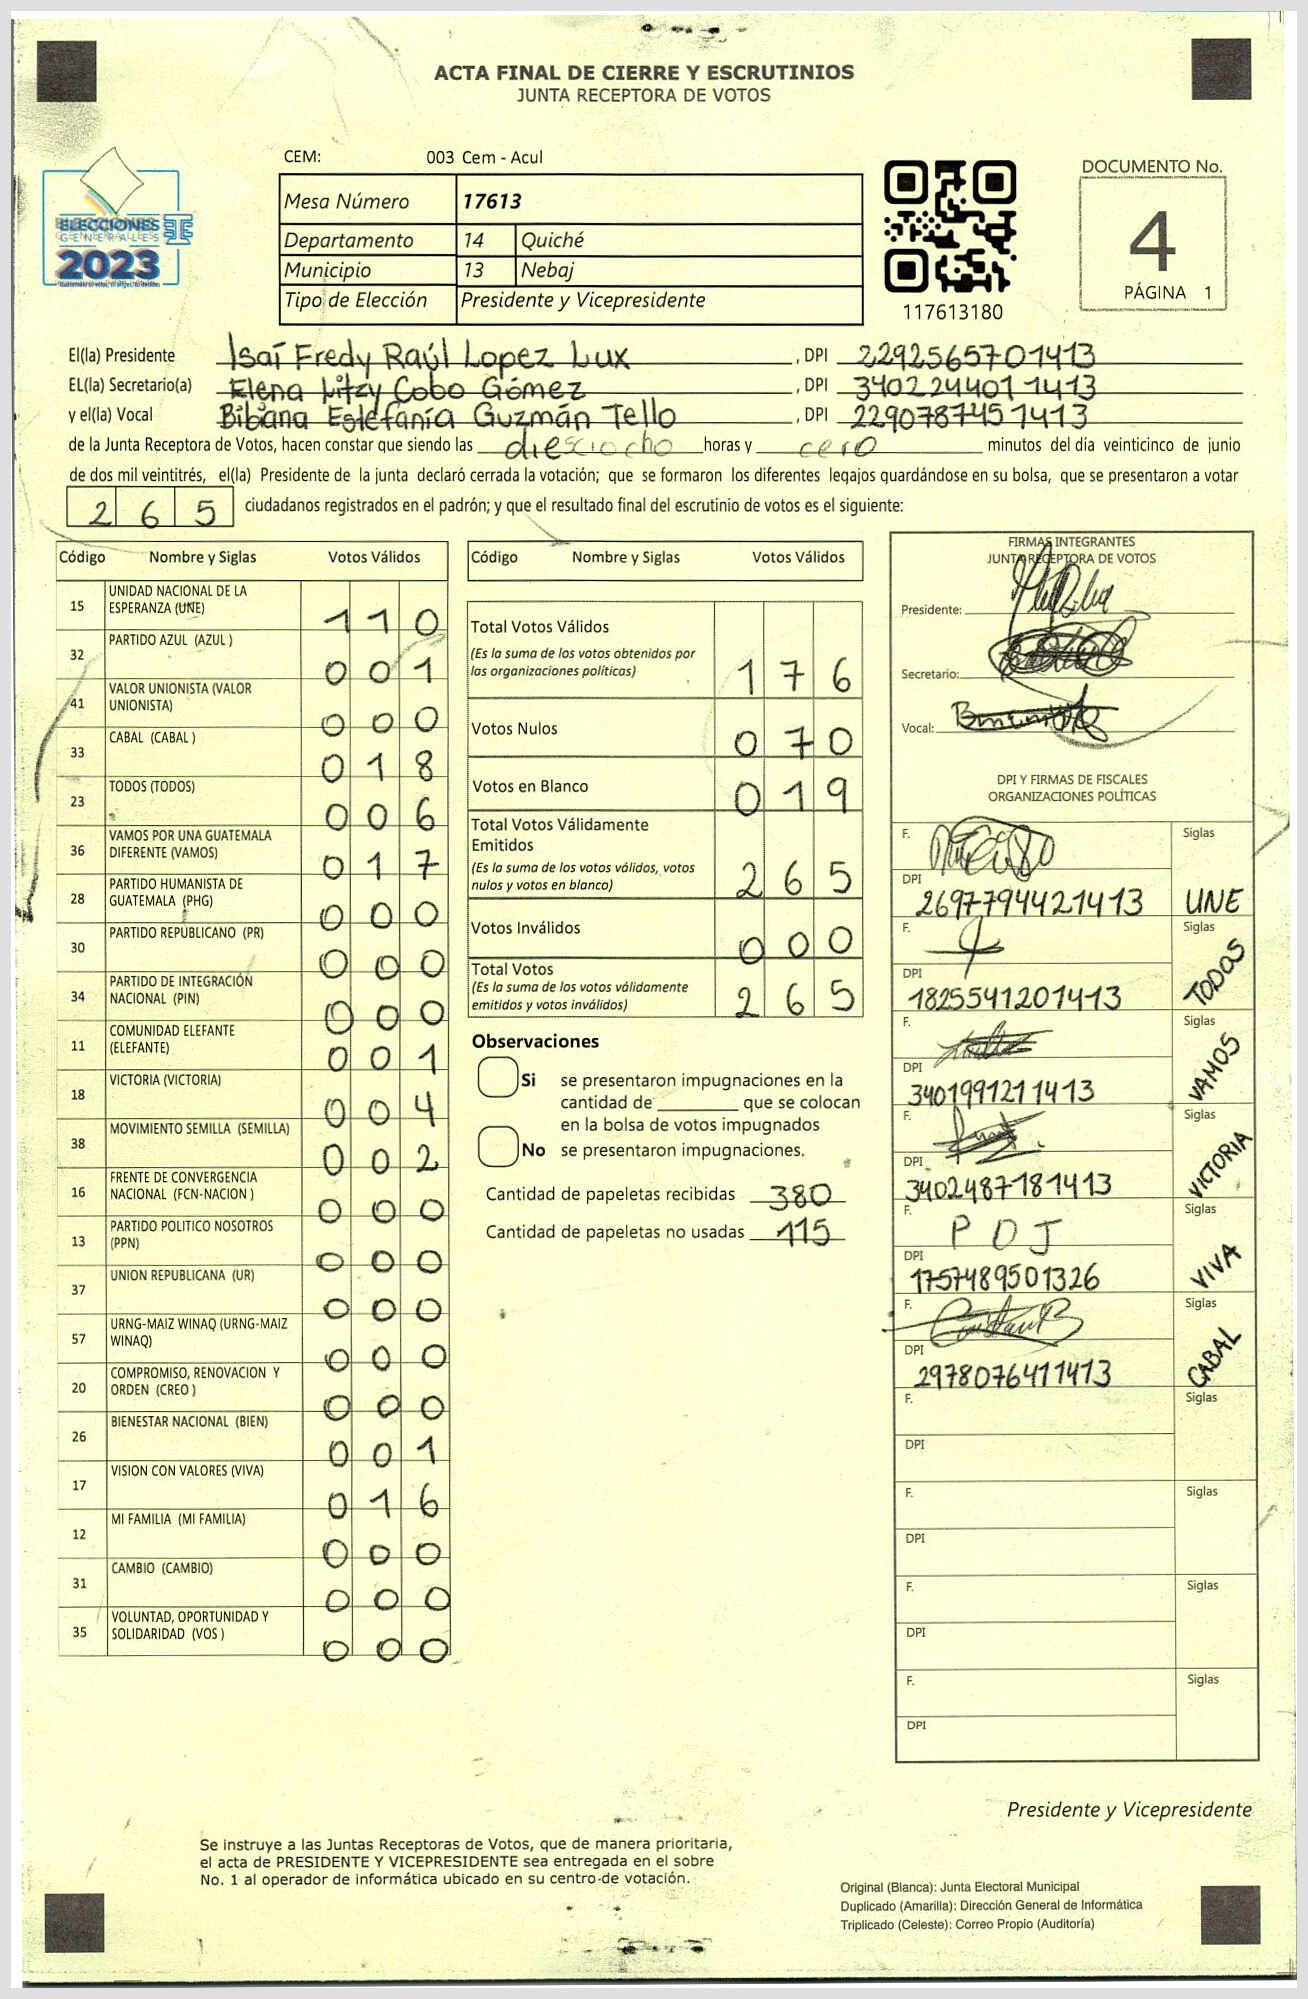 ACTA FINAL DE CIERRE Y ESCRUTINIOS
JUNTA RECEPTORA DE VOTOS
CEM: 003 Cem - Acul
ELECCIONES
GENERALES
2023
Mesa Número 17613
Departamento 14 Quiché
Municipio 13 Nebaj
Tipo de Elección Presidente y Vicepresidente
117613180
DOCUMENTO No.
4
PÁGINA 1
El(la) Presidente Isaí Fredy Raúl Lopez Lux , DPI 2292565701413
EL(la) Secretario(a) Elena Litzy Cobo Gómez , DPI 3402244011413
y el(la) Vocal Bibiana Estefanía Guzmán Tello , DPI 2290787451413
de la Junta Receptora de Votos, hacen constar que siendo las diesciocho horas y cero minutos del día veinticinco de junio
de dos mil veintitrés, el(la) Presidente de la junta declaró cerrada la votación; que se formaron los diferentes legajos guardándose en su bolsa, que se presentaron a votar
265 ciudadanos registrados en el padrón; y que el resultado final del escrutinio de votos es el siguiente:
Código Nombre y Siglas Votos Válidos
15 UNIDAD NACIONAL DE LA
ESPERANZA (UNE) 110
32 PARTIDO AZUL (AZUL ) 001
41 VALOR UNIONISTA (VALOR
UNIONISTA) 000
33 CABAL (CABAL ) 018
23 TODOS (TODOS) 006
36 VAMOS POR UNA GUATEMALA
DIFERENTE (VAMOS) 017
28 PARTIDO HUMANISTA DE
GUATEMALA (PHG) 000
30 PARTIDO REPUBLICANO (PR) 000
34 PARTIDO DE INTEGRACIÓN
NACIONAL (PIN) 000
11 COMUNIDAD ELEFANTE
(ELEFANTE) 001
18 VICTORIA (VICTORIA) 004
38 MOVIMIENTO SEMILLA (SEMILLA) 002
16 FRENTE DE CONVERGENCIA
NACIONAL (FCN-NACION ) 000
13 PARTIDO POLITICO NOSOTROS
(PPN) 000
37 UNION REPUBLICANA (UR) 000
57 URNG-MAIZ WINAQ (URNG-MAIZ
WINAQ) 000
20 COMPROMISO, RENOVACION Y
ORDEN (CREO ) 000
26 BIENESTAR NACIONAL (BIEN) 001
17 VISION CON VALORES (VIVA) 016
12 MI FAMILIA (MI FAMILIA) 000
31 CAMBIO (CAMBIO) 000
35 VOLUNTAD, OPORTUNIDAD Y
SOLIDARIDAD (VOS ) 000
Código Nombre y Siglas Votos Válidos
Total Votos Válidos
(Es la suma de los votos obtenidos por
las organizaciones políticas) 176
Votos Nulos 070
Votos en Blanco 019
Total Votos Válidamente
Emitidos
(Es la suma de los votos válidos, votos
nulos y votos en blanco) 265
Votos Inválidos 000
Total Votos
(Es la suma de los votos válidamente
emitidos y votos inválidos) 265
Observaciones
Si se presentaron impugnaciones en la
cantidad de ________ que se colocan
en la bolsa de votos impugnados
No se presentaron impugnaciones.
Cantidad de papeletas recibidas 380
Cantidad de papeletas no usadas 115
FIRMAS INTEGRANTES
JUNTA RECEPTORA DE VOTOS
Presidente:
Secretario:
Vocal:
DPI Y FIRMAS DE FISCALES
ORGANIZACIONES POLÍTICAS
F. Siglas
DPI 2697794421413 UNE
F. Siglas
DPI 1825541201413 TODOS
F. Siglas
DPI 3401991211413 VAMOS
F. Siglas
DPI 3402487181413 VICTORIA
F. P D J Siglas
DPI 1757489501326 VIVA
F. Siglas
DPI 2978076411413 CABAL
F. Siglas
DPI
F. Siglas
DPI
F. Siglas
DPI
F. Siglas
DPI
Presidente y Vicepresidente
Se instruye a las Juntas Receptoras de Votos, que de manera prioritaria,
el acta de PRESIDENTE Y VICEPRESIDENTE sea entregada en el sobre
No. 1 al operador de informática ubicado en su centro de votación.
Original (Blanca): Junta Electoral Municipal
Duplicado (Amarilla): Dirección General de Informática
Triplicado (Celeste): Correo Propio (Auditoría)